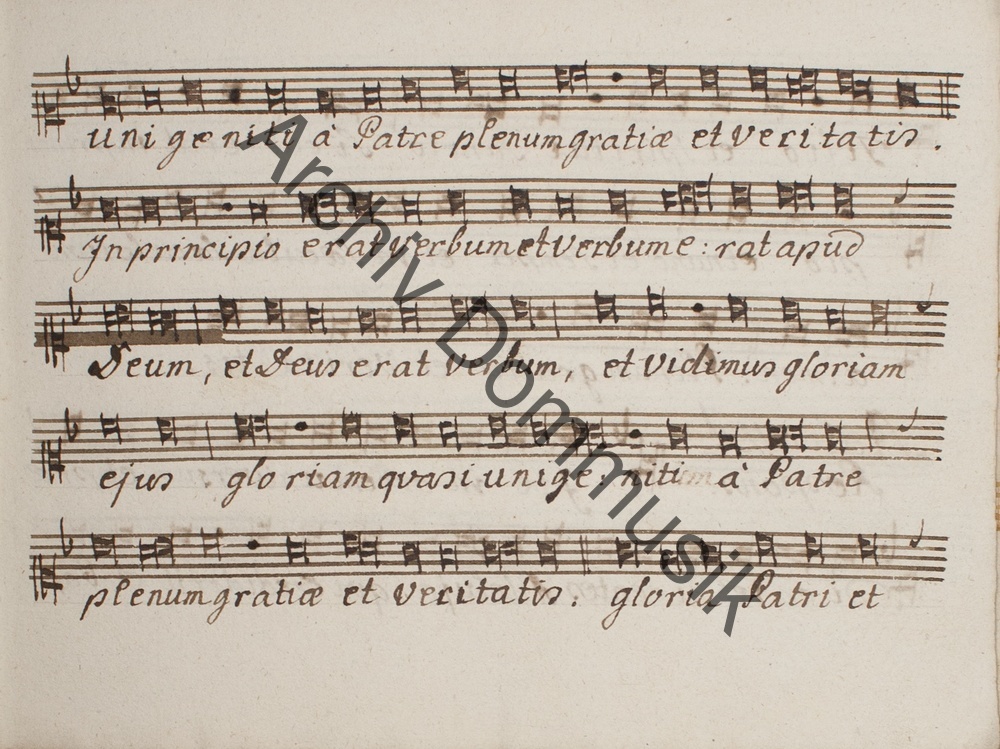 unigeniti à Patre plenum gratiæ et veritatis.
In principio erat verbum et verbum e: rat apud
Deum, et Deus erat verbum, et vidimus gloriam
ejus. gloriam quasi unige: niti à Patre
plenum gratiæ et veritatis: gloria Patri et
Archiv Dommusik